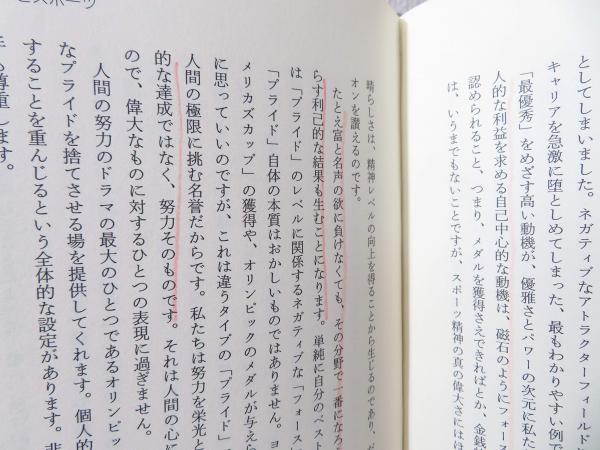 としてしまいました。ネガティブなアトラクターフィールドに
キャリアを急激に堕としめてしまった、最もわかりやすい例で
「最優秀」をめざす高い動機が、優雅さとパワーの次元に私た
人的な利益を求める自己中心的な動機は、磁石のようにフォース
認められること、つまり、メダルを獲得さえできればとか、金銭的
は、いうまでもないことですが、スポーツ精神の真の偉大さにはほ
晴らしさは、精神レベルの向上を得ることから生じるのであり、
オンを讃えるのです。
たとえ富と名声の欲に負けなくても、その分野で一番になろ
らす利己的な結果も生むことになります。単純に自分のベスト
は「プライド」のレベルに関係するネガティブな「フォース」
「プライド」自体の本質はおかしいものではありません。ヨ
メリカズカップ」の獲得や、オリンピックのメダルが与えら
に思っていいのですが、これは違うタイプの「プライド」
人間の極限に挑む名誉だからです。私たちは努力を栄光と
的な達成ではなく、努力そのものです。それは人間の心に
ので、偉大なものに対するひとつの表現に過ぎません。
人間の努力のドラマの最大のひとつであるオリンピッ
なプライドを捨てさせる場を提供してくれます。個人的
することを重んじるという全体的な設定があります。
も尊重します。
とスポーツ